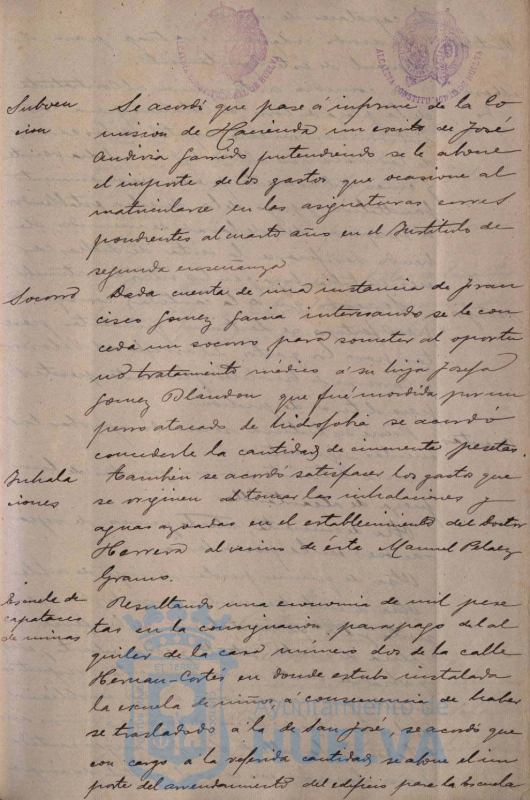 ALCALDIA CONSTITUCIONAL DE HUELVA
ALCALDIA CONSTITUCIONAL DE HUELVA
Subven
cion
Se acordó que pase á informe de la Co
misión de Hacienda un escrito de José
Garrido pretendiendo se le abone
el importe de los gastos que ocasione al
matricularse en las asignaturas corres
pondientes al cuarto año en el Instituto de
segunda enseñanza
Socorro
Dada cuenta de una instancia de Fran
cisco Gomez Garcia interesando se le con
ceda un socorro para someter al oportu
no tratamiento médico á su hija Josefa
Gomez Blandon que fué mordida por un
perro atacado de hidrofobia se acordó
concederle la cantidad de cincuenta pesetas.
Inhala
ciones
Tambien se acordó satisfacer los gastos que
se orijinen al tomar las inhalaciones y
aguas azoadas en el establecimiento del Doctor
Herrera al vecino de ésta Manuel Pelaez
Escuela de
capataces
de minas
Resultando una economia de mil pese
tas en la consignación para pago del al
quiler de la casa número dos de la calle
Hernan-Cortés en donde estubo instalada
la escuela de niños, á consecuencia de haber
se trasladado á la de San José, se acordó que
con cargo a la referida cantidad se abone el im
porte del arrendamiento del edificio para la Escuela
Ayuntamiento de
HUELVA